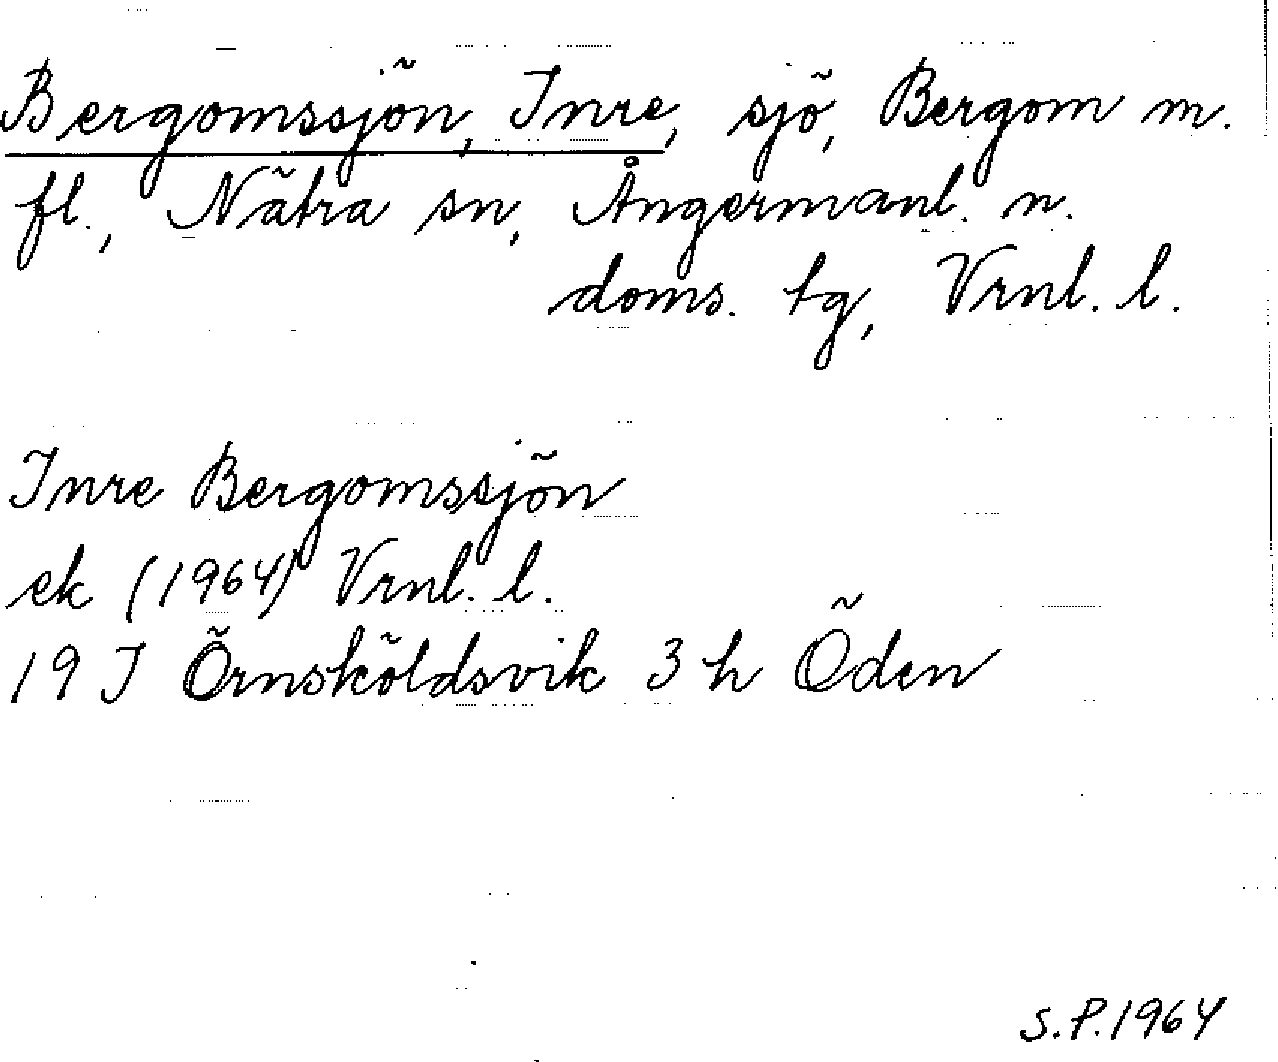 Bergomssjön, Inre, sjö, Bergom m.
fl., Nätra sn, Ångermanl. n.
doms. tg, Vrnl. l.
Inre Bergomssjön
ek (1964) Vrnl. l.
19 J Örnsköldsvik 3 h Öden
S.P. 1964